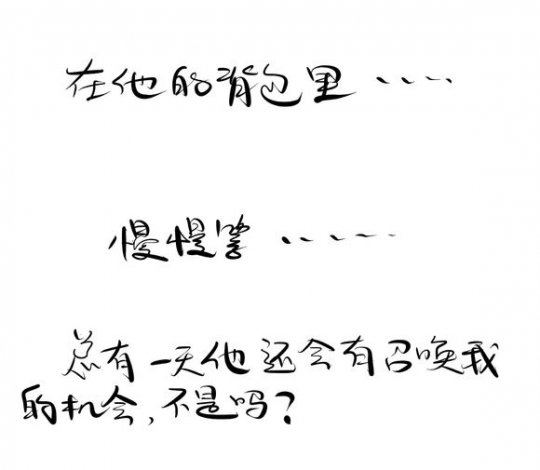 在他的背包里····
慢慢等·····
总有一天他还会有召唤我
的机会,不是吗?